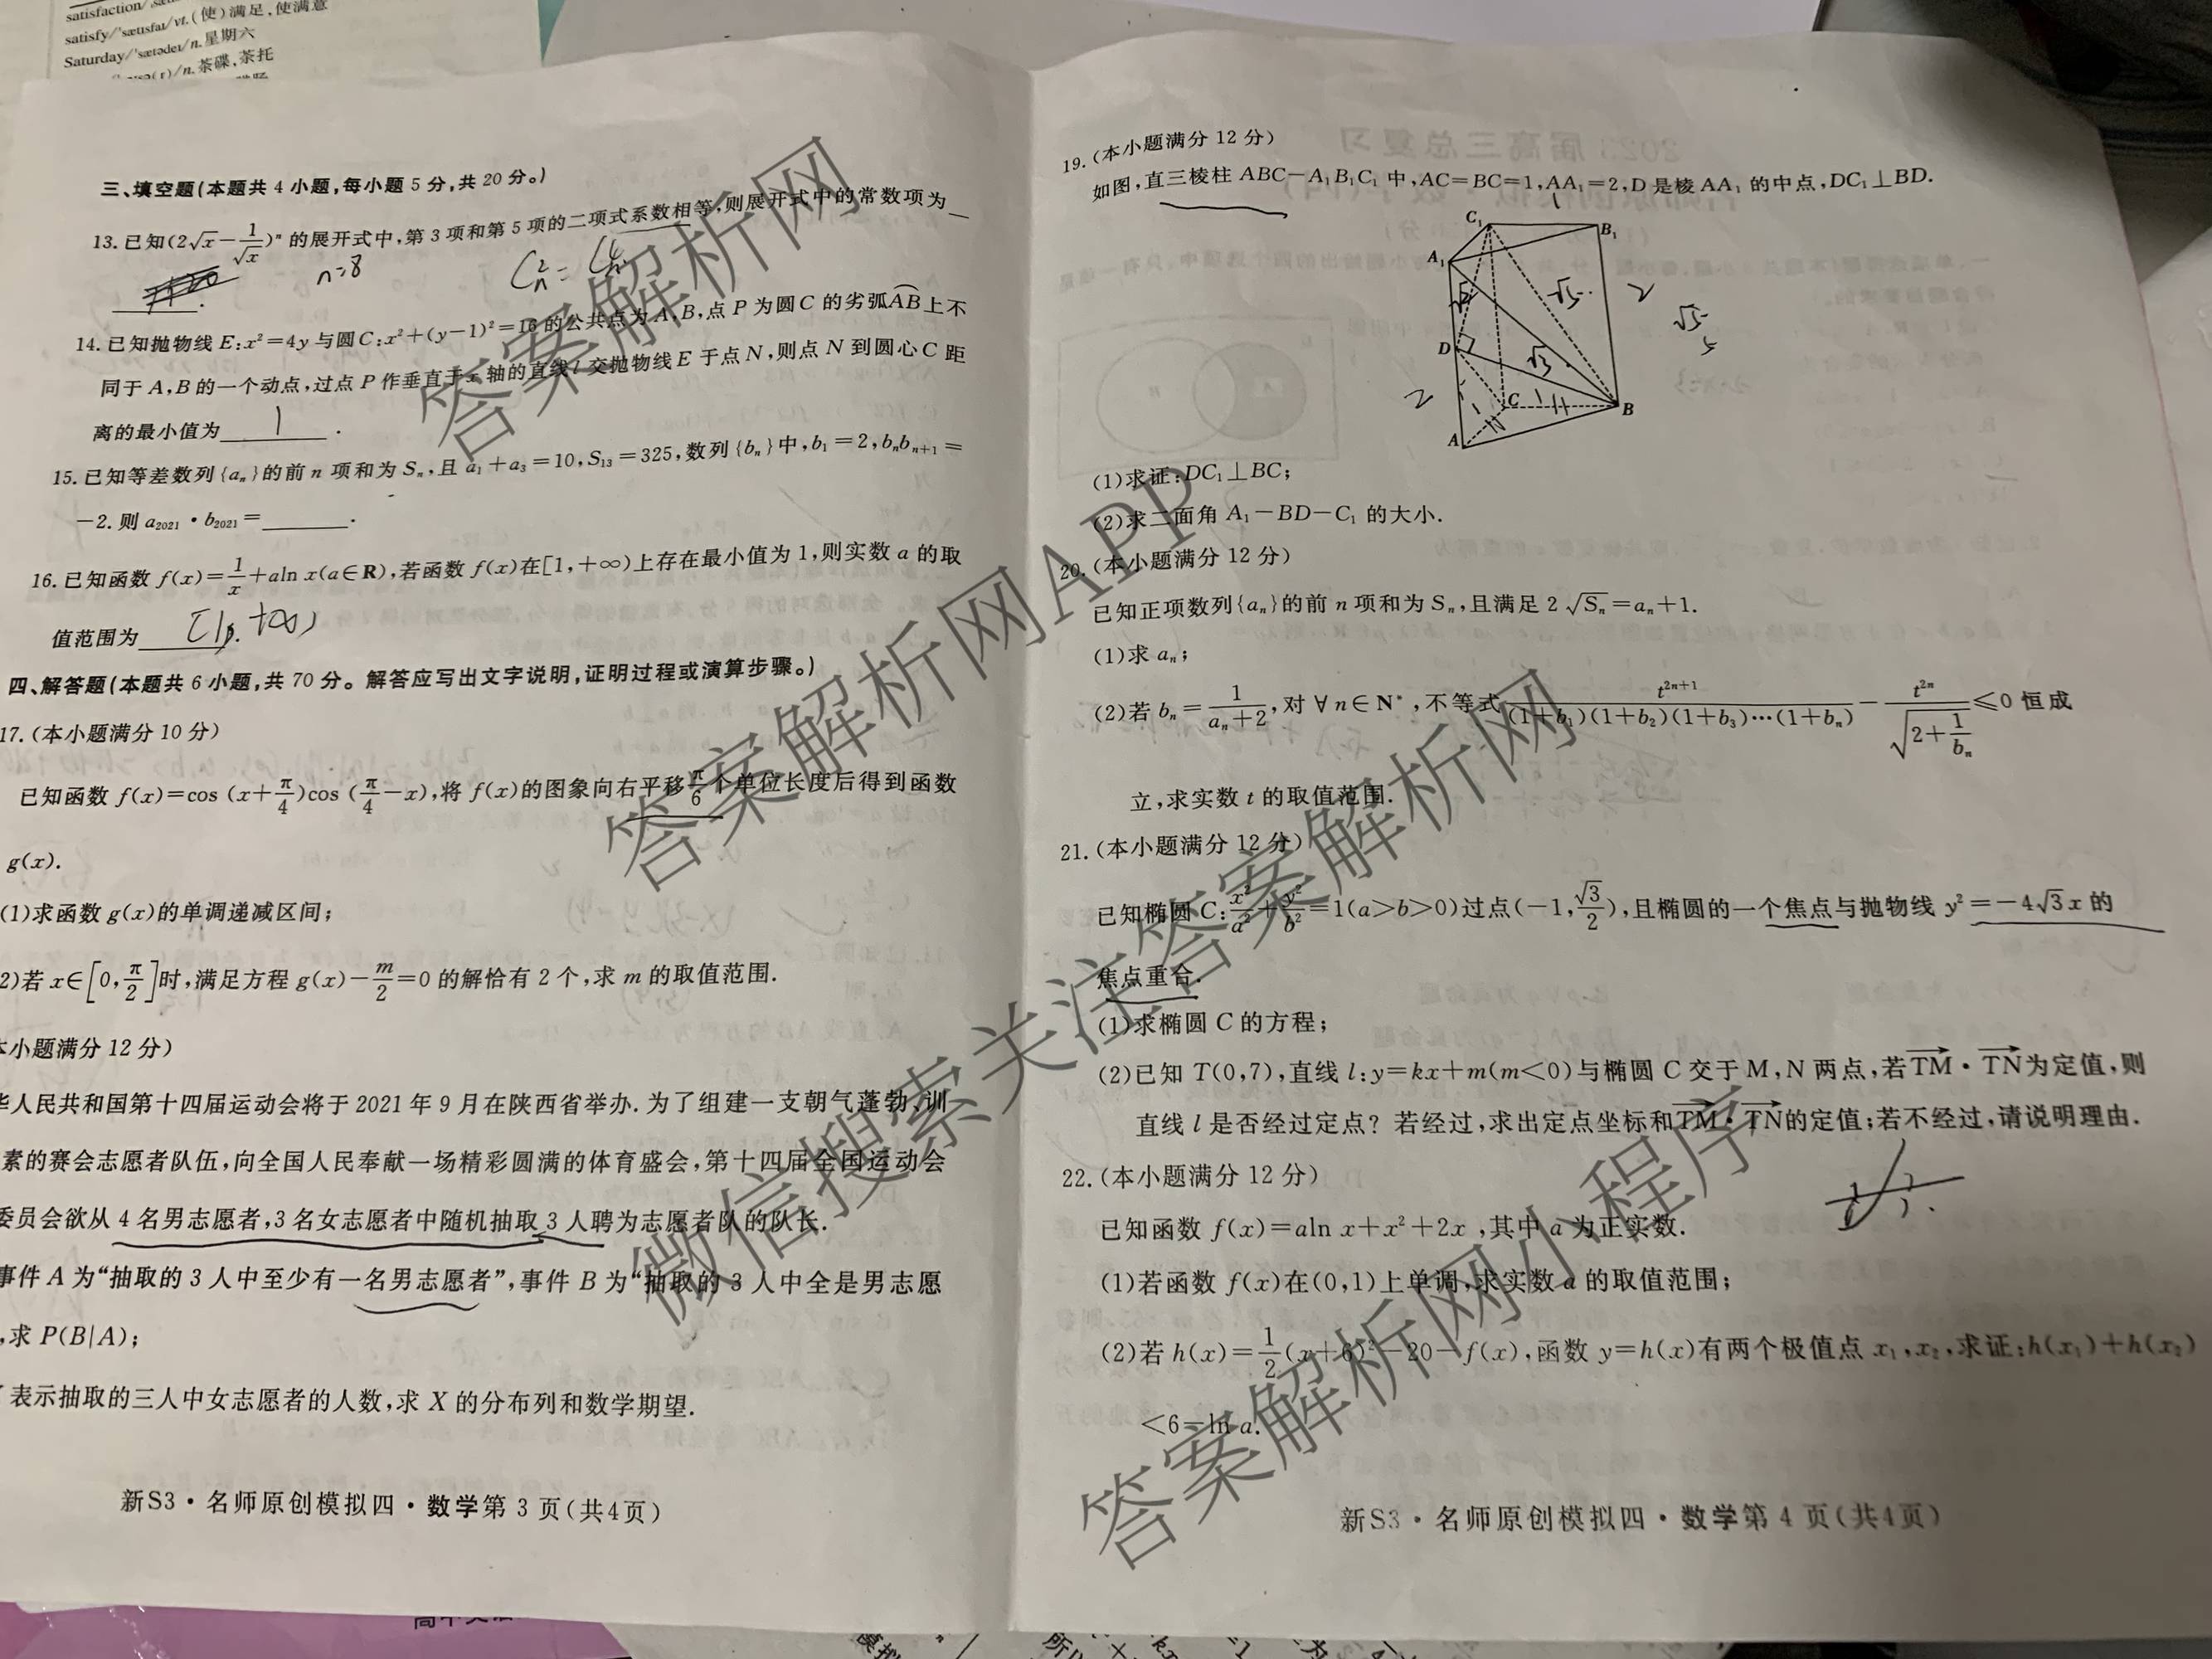 satisfaction/
satisfy/'sætɪsfaɪ/vt.(使)满足,使满意
Saturday/'sætədeɪ/n.星期六
n.茶碟,茶托
三、填空题(本题共 4 小题,每小题 5 分,共 20 分。)
13.已知(2√x-1/√x)ⁿ 的展开式中,第 3 项和第 5 项的二项式系数相等,则展开式中的常数项为
n=8
.
14.已知抛物线 E:x²=4y 与圆 C:x²+(y-1)²=16 的公共点为 A,B,点 P 为圆 C 的劣弧AB上不
同于 A,B 的一个动点,过点 P 作垂直于 x 轴的直线 l 交抛物线 E 于点 N,则点 N 到圆心 C 距
离的最小值为 1 .
15.已知等差数列{aₙ}的前 n 项和为 Sₙ,且 a₁+a₃=10,S₁₃=325,数列{bₙ}中,b₁=2,bₙbₙ₊₁=
-2.则 a₂₀₂₁·b₂₀₂₁=______.
16.已知函数 f(x)=1/x+aln x(a∈R),若函数 f(x)在[1,+∞)上存在最小值为 1,则实数 a 的取
值范围为 [1,+∞) .
四、解答题(本题共 6 小题,共 70 分。解答应写出文字说明,证明过程或演算步骤。)
17.(本小题满分 10 分)
已知函数 f(x)=cos (x+π/4)cos (π/4-x),将 f(x)的图象向右平移π/6个单位长度后得到函数
g(x).
(1)求函数 g(x)的单调递减区间;
2)若 x∈[0,π/2]时,满足方程 g(x)-m/2=0 的解恰有 2 个,求 m 的取值范围.
本小题满分 12 分)
华人民共和国第十四届运动会将于 2021 年 9 月在陕西省举办.为了组建一支朝气蓬勃、训
素的赛会志愿者队伍,向全国人民奉献一场精彩圆满的体育盛会,第十四届全国运动会
委员会欲从 4 名男志愿者,3 名女志愿者中随机抽取 3 人聘为志愿者队的队长.
事件 A 为“抽取的 3 人中至少有一名男志愿者”,事件 B 为“抽取的 3 人中全是男志愿
,求 P(B|A);
表示抽取的三人中女志愿者的人数,求 X 的分布列和数学期望.
新S3·名师原创模拟四·数学第 3 页(共4页)
19.(本小题满分 12 分)
如图,直三棱柱 ABC-A₁B₁C₁ 中,AC=BC=1,AA₁=2,D 是棱 AA₁ 的中点,DC₁⊥BD.
C₁
B₁
A₁
√2
√5
2
√5
D
√3
2
C
1
B
A
(1)求证:DC₁⊥BC;
(2)求二面角 A₁-BD-C₁ 的大小.
20.(本小题满分 12 分)
已知正项数列{aₙ}的前 n 项和为 Sₙ,且满足 2√Sₙ=aₙ+1.
(1)求 aₙ;
(2)若 bₙ=1/(aₙ+2),对∀n∈N*,不等式 t²ⁿ⁺¹/((1+b₁)(1+b₂)(1+b₃)…(1+bₙ))-t²ⁿ/√(2+1/bₙ)≤0 恒成
立,求实数 t 的取值范围.
21.(本小题满分 12 分)
已知椭圆 C:x²/a²+y²/b²=1(a>b>0)过点(-1,√3/2),且椭圆的一个焦点与抛物线 y²=-4√3x 的
焦点重合.
(1)求椭圆 C 的方程;
(2)已知 T(0,7),直线 l:y=kx+m(m<0)与椭圆 C 交于 M,N 两点,若TM·TN为定值,则
直线 l 是否经过定点?若经过,求出定点坐标和TM·TN的定值;若不经过,请说明理由.
22.(本小题满分 12 分)
已知函数 f(x)=aln x+x²+2x ,其中 a 为正实数.
(1)若函数 f(x)在(0,1)上单调,求实数 a 的取值范围;
(2)若 h(x)=1/2(x+6)²-20-f(x),函数 y=h(x)有两个极值点 x₁,x₂,求证:h(x₁)+h(x₂)
<6-ln a.
新S3·名师原创模拟四·数学第 4 页(共4页)
答案解析网
答案解析网APP
微信搜索关注答案解析网
答案解析网小程序